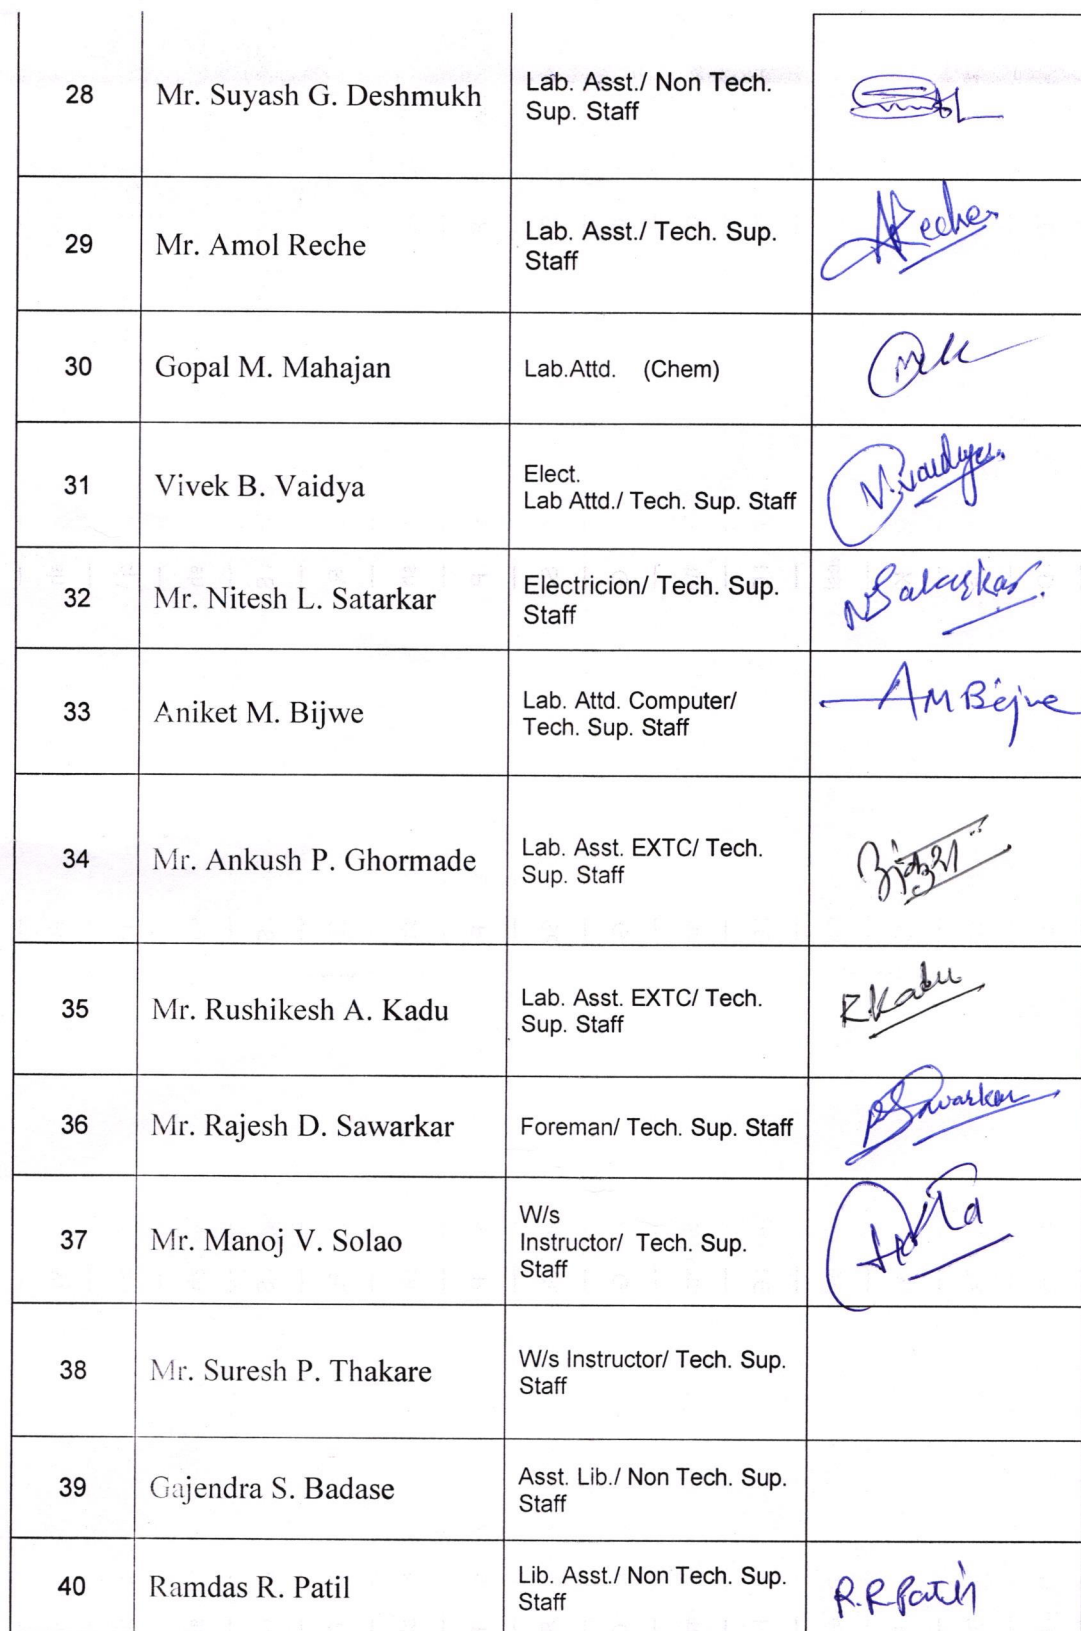 28 Mr. Suyash G. Deshmukh Lab. Asst./ Non Tech.
Sup. Staff
29 Mr. Amol Reche Lab. Asst./ Tech. Sup.
Staff
AReche
30 Gopal M. Mahajan Lab.Attd. (Chem)
31 Vivek B. Vaidya Elect.
Lab Attd./ Tech. Sup. Staff
V.Vaidya
32 Mr. Nitesh L. Satarkar Electricion/ Tech. Sup.
Staff
NSatarkar
33 Aniket M. Bijwe Lab. Attd. Computer/
Tech. Sup. Staff
AMBijwe
34 Mr. Ankush P. Ghormade Lab. Asst. EXTC/ Tech.
Sup. Staff
35 Mr. Rushikesh A. Kadu Lab. Asst. EXTC/ Tech.
Sup. Staff
RKadu
36 Mr. Rajesh D. Sawarkar Foreman/ Tech. Sup. Staff
RSawarkar
37 Mr. Manoj V. Solao W/s
Instructor/ Tech. Sup.
Staff
38 Mr. Suresh P. Thakare W/s Instructor/ Tech. Sup.
Staff
39 Gajendra S. Badase Asst. Lib./ Non Tech. Sup.
Staff
40 Ramdas R. Patil Lib. Asst./ Non Tech. Sup.
Staff
R.R Patil